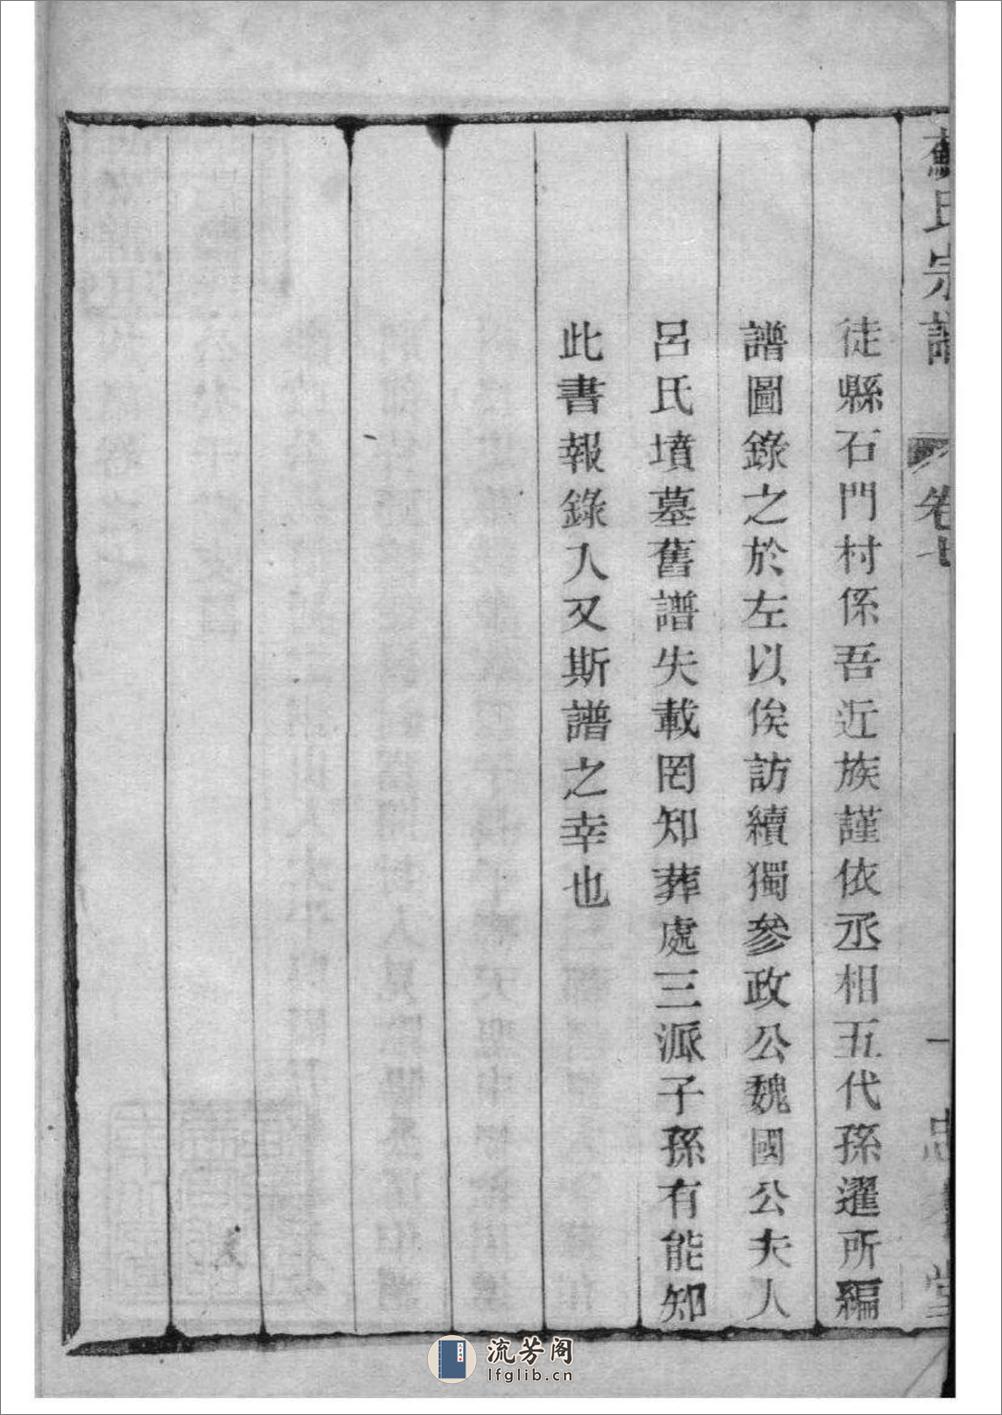 徒縣石門村係吾近族謹依丞相五代孫遲所編
譜圖錄之於左以俟訪續獨參政公魏國公夫人
呂氏墳墓舊譜失載罔知葬處三派子孫有能知
此書報錄入又斯譜之幸也
蘇氏宗譜
卷七
一
堂
流芳阁
lfglib.cn